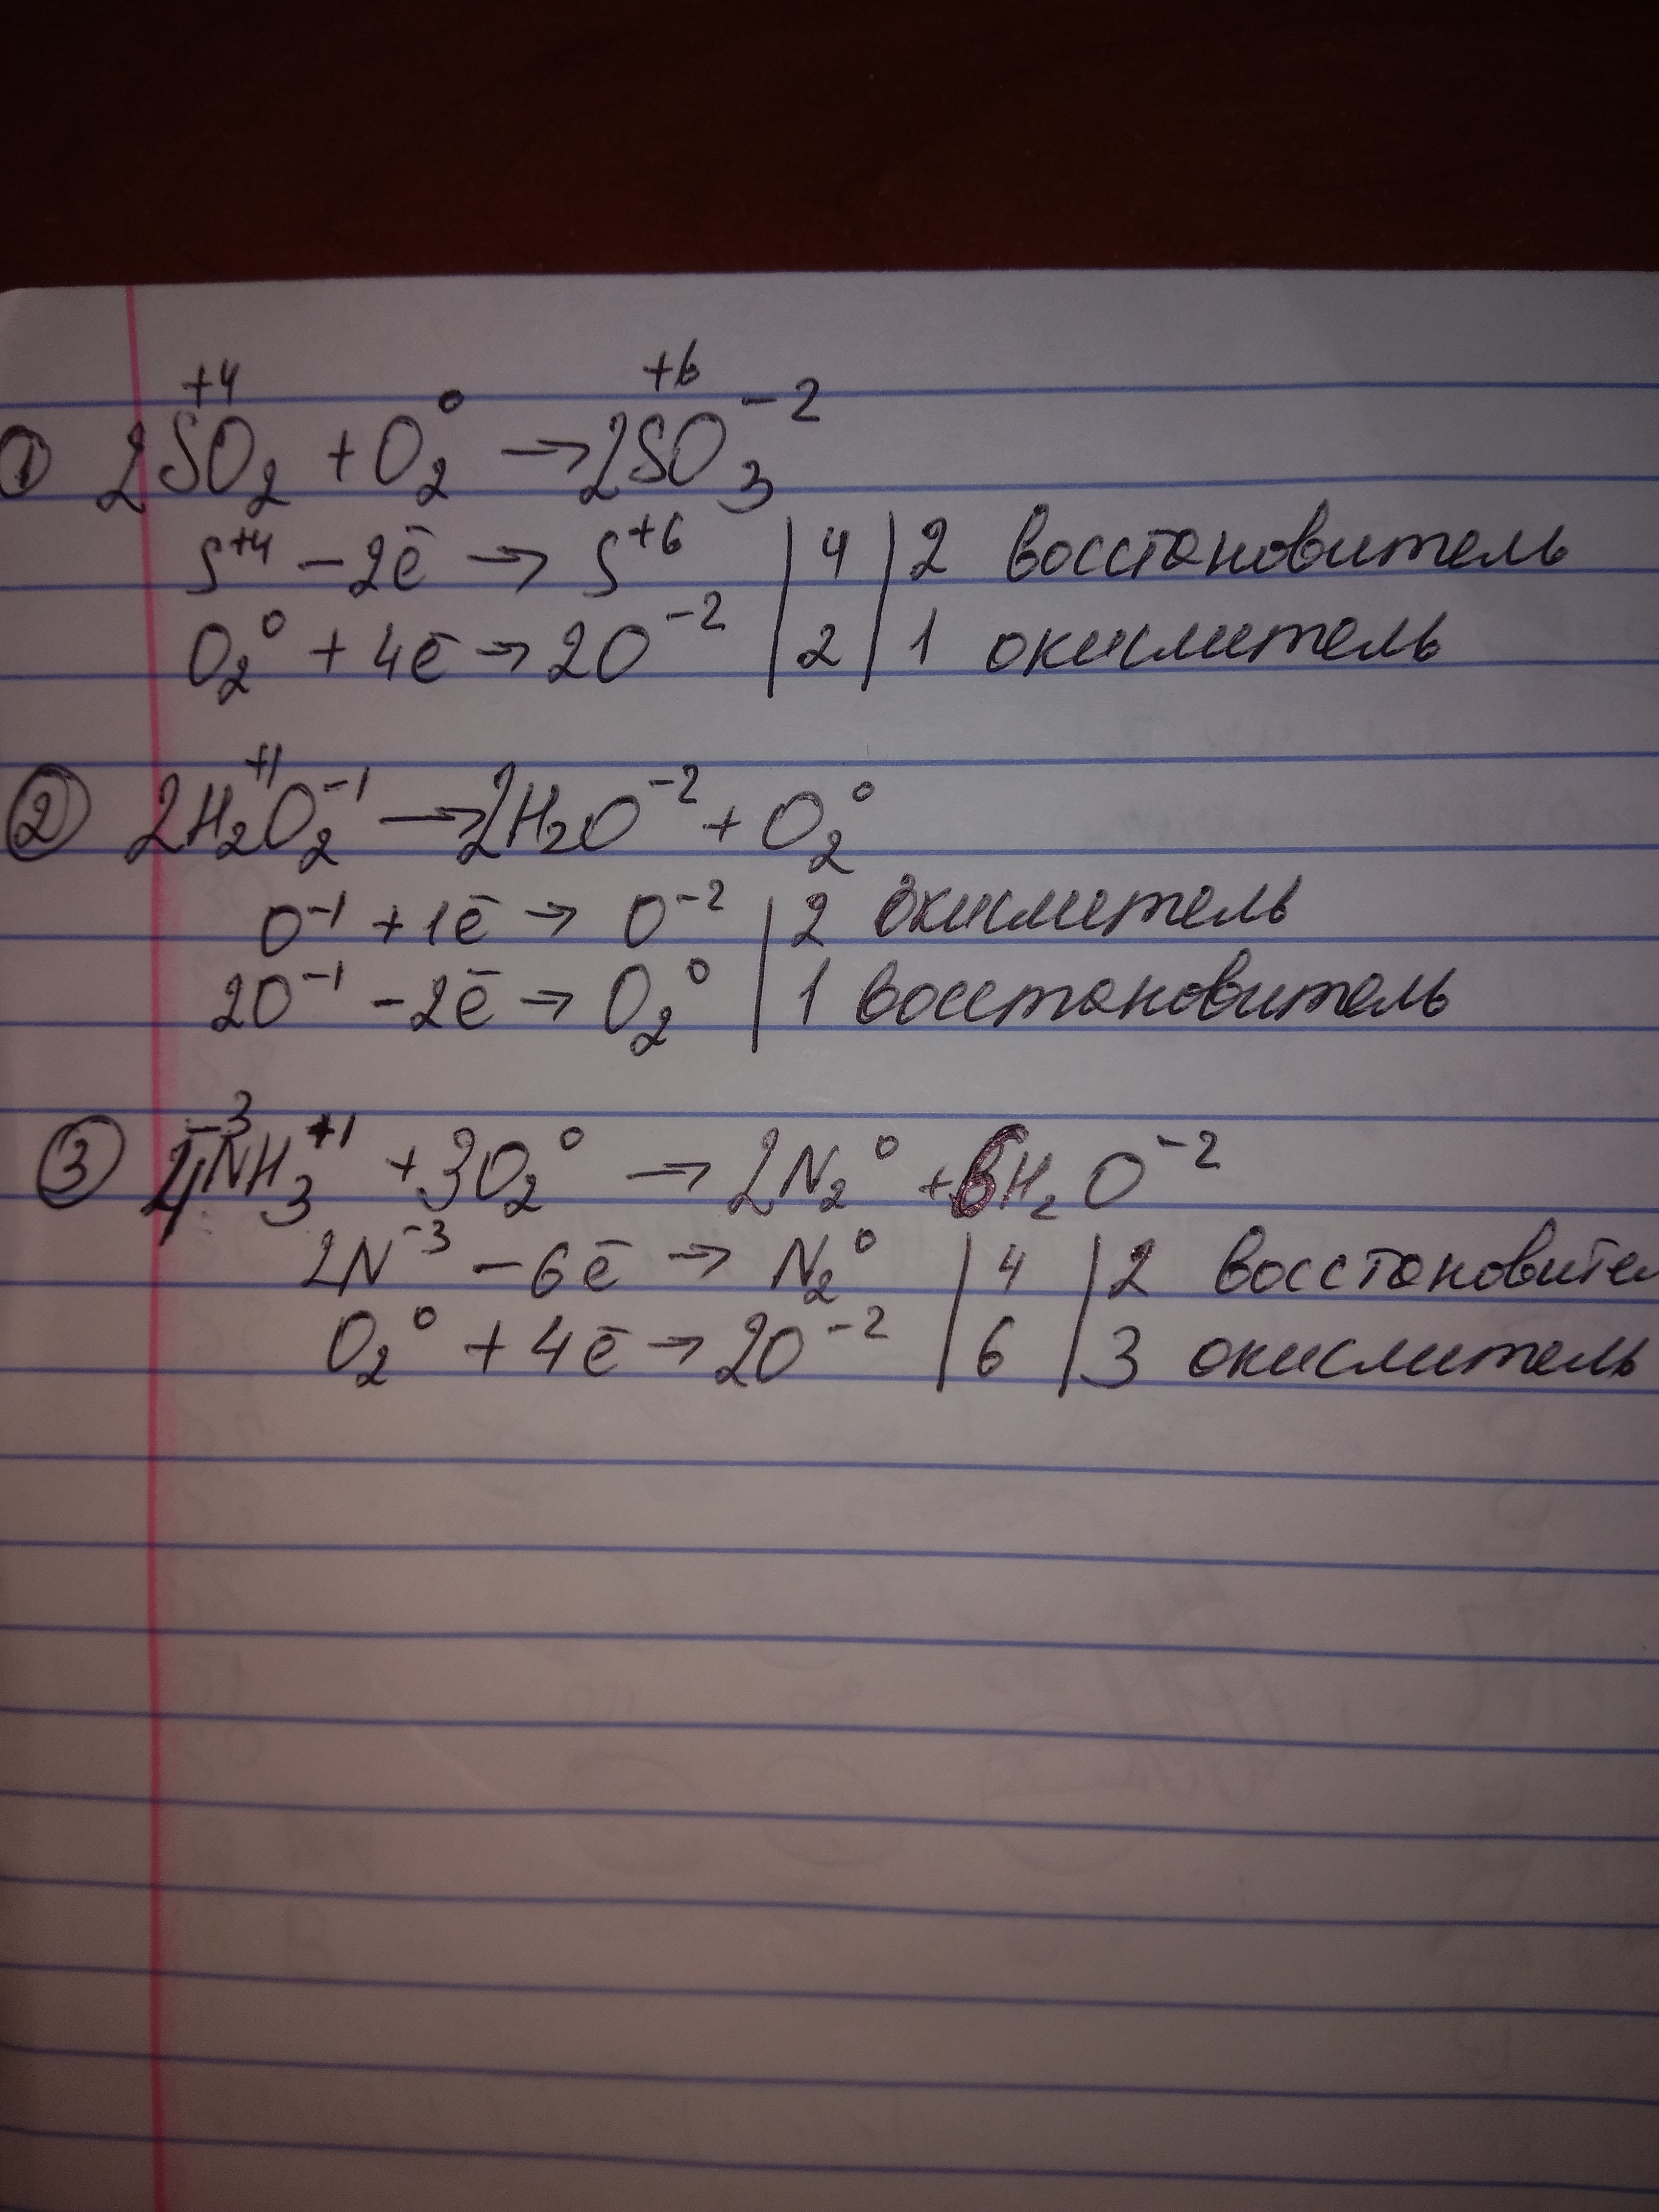 ① 2S⁺⁴O₂ + O₂⁰ → 2S⁺⁶O₃⁻²
S⁺⁴ - 2ē → S⁺⁶ | 4 | 2 восстановитель
O₂⁰ + 4ē → 2O⁻² | 2 | 1 окислитель
② 2H₂⁺¹O₂⁻¹ → 2H₂O⁻² + O₂⁰
O⁻¹ + 1ē → O⁻² | 2 окислитель
2O⁻¹ - 2ē → O₂⁰ | 1 восстановитель
③ 4N⁻³H₃⁺¹ + 3O₂⁰ → 2N₂⁰ + 6H₂O⁻²
2N⁻³ - 6ē → N₂⁰ | 4 | 2 восстановител
O₂⁰ + 4ē → 2O⁻² | 6 | 3 окислитель